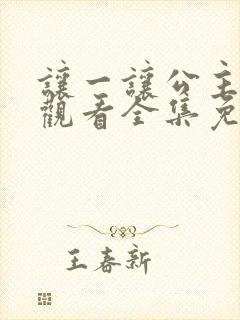 讓一讓公主
觀看全集免
王春新